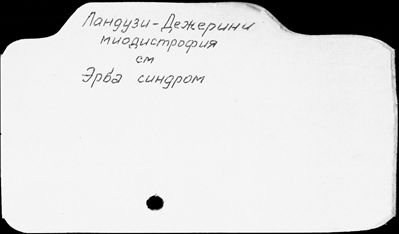 Ландузи-Дежерини
миодистрофия
см
Эрба синдром